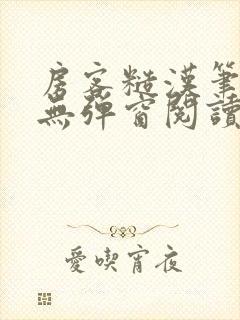 房客糙漢筆
無彈窗閱讀
愛喫宵夜